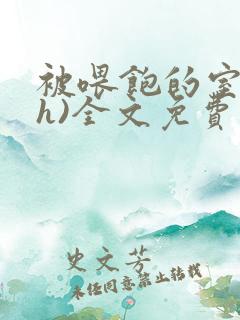 被喂饱的室
h)全文免费
史文芳
未经同意禁止转载